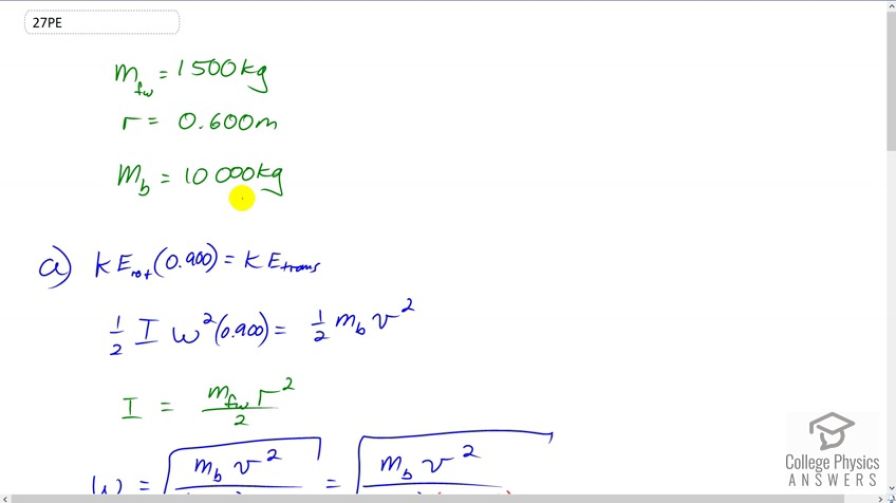 27PE
m_fw = 1500kg
r = 0.600m
m_b = 10 000kg
a) KE_rot (0.900) = KE_trans
1/2 I ω² (0.900) = 1/2 m_b v²
I = m_fw r² / 2
ω = √(m_b v² = √(m_b v²
College Physics
ANSWERS